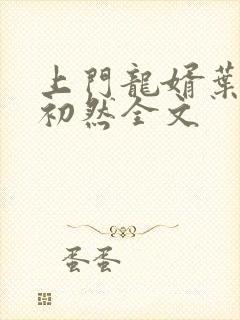 上門龍婿葉
初然全文
蛋蛋